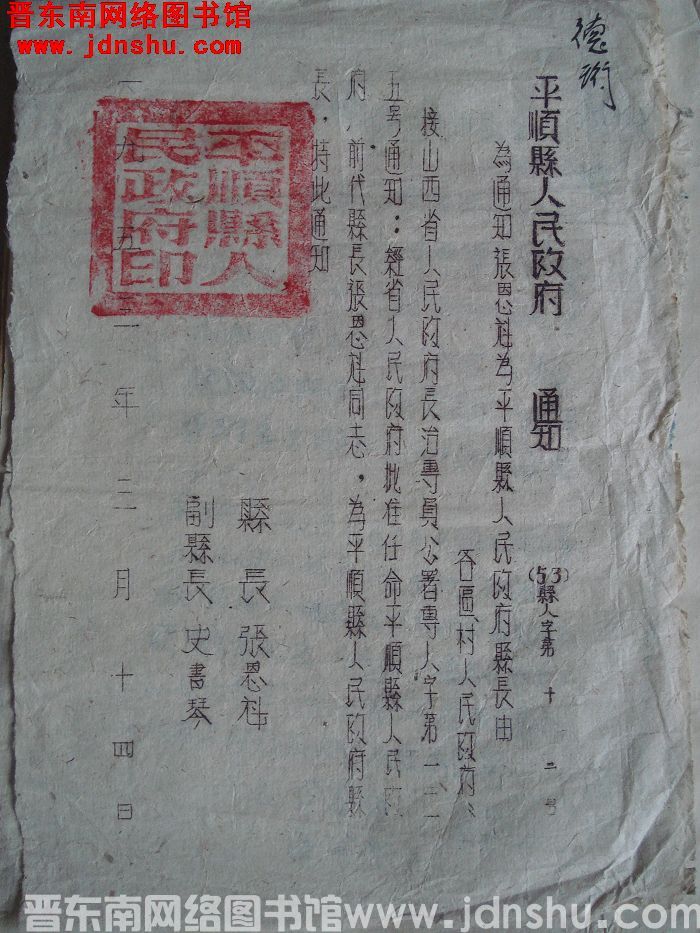 晋东南网络图书馆
www.jdnshu.com
德珩
平順縣人民政府 通知
(53)縣人字第十二号
為通知張恩科為平順縣人民政府縣長由
各區村人民政府：
接山西省人民政府長治專員公署專人字第一三
五号通知：経省人民政府批准任命平順縣人民政
府，前代縣長張恩科同志，為平順縣人民政府縣
長，特此通知
縣 長 張恩科
副縣長 史書琴
一九五三年三月十四日
平順縣人
民政府印
晋东南网络图书馆www.jdnshu.com